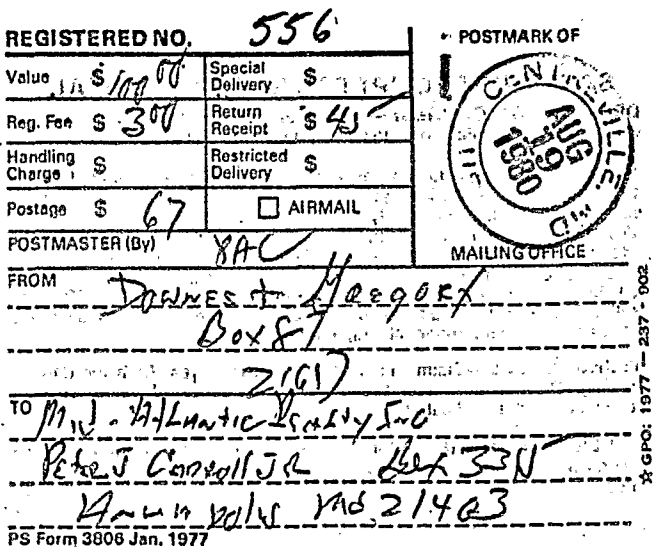 REGISTERED NO. 556
POSTMARK OF
Value $ 100 00 Special Delivery $
Reg. Fee $ 3 00 Return Receipt $ 45
Handling Charge $ Restricted Delivery $
Postage $ 67 AIRMAIL
CENTREVILLE, MD
AUG
19
1980
POSTMASTER (By)
MAILING OFFICE
FROM Downes +
Box 87
21617
TO Mid-Atlantic Realty Inc
Peter J Carroll Jr Box 33N
Annapolis Md. 21403
PS Form 3806 Jan. 1977
☆ GPO: 1977 — 237 - 002